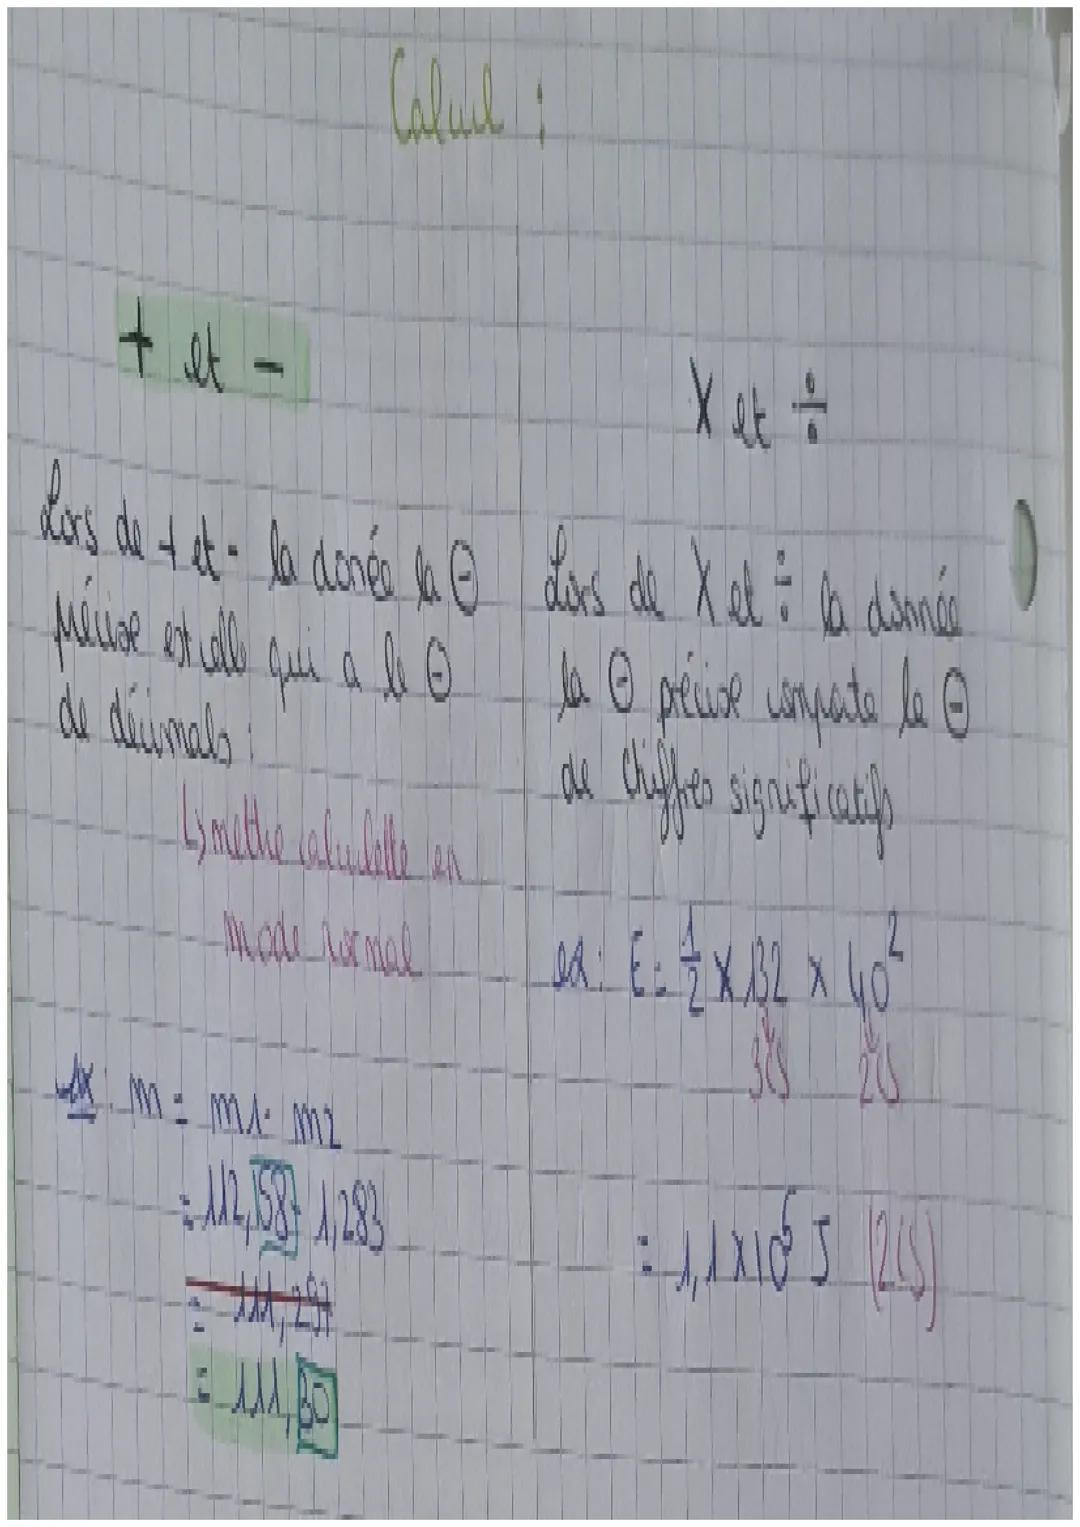 Calcul :
+ et -
Lors de + et - la donée la ⊖
précise est celle qui a le ⊖
de décimals :
↳ mettre calculette en
mode normal
ex : m = m1 - m2
= 112,58 - 1,283
= 111,297
= 111,30
X et ÷
Lors de X et ÷ la donnée
la ⊖ précise comporte le ⊖
de chiffres significatifs
ex : E = 1/2 x 132 x 40²
3CS 2CS
= 1,1 x 10⁵ J (2CS)